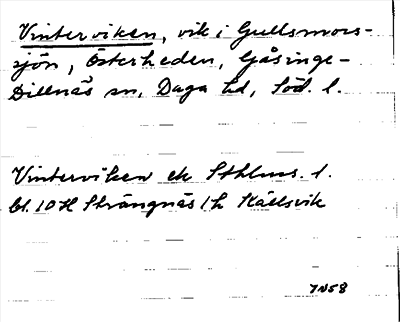 Vinterviken, vik i Gullsmors-
sjön, Österheden, Gåsinge-
Dillnäs sn, Daga hd, Söd. l.
Vinterviken ek Sthlms. l.
bl. 10 H Strängnäs /h Källsvik
7N58